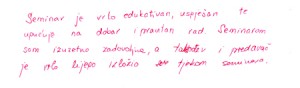 Seminar je vrlo edukativan, uspješan te
upućuje na dobar i pravilan rad. Seminarom
sam izuzetno zadovoljna, a također i predavač
je vrlo lijepo izložio tijekom seminara.